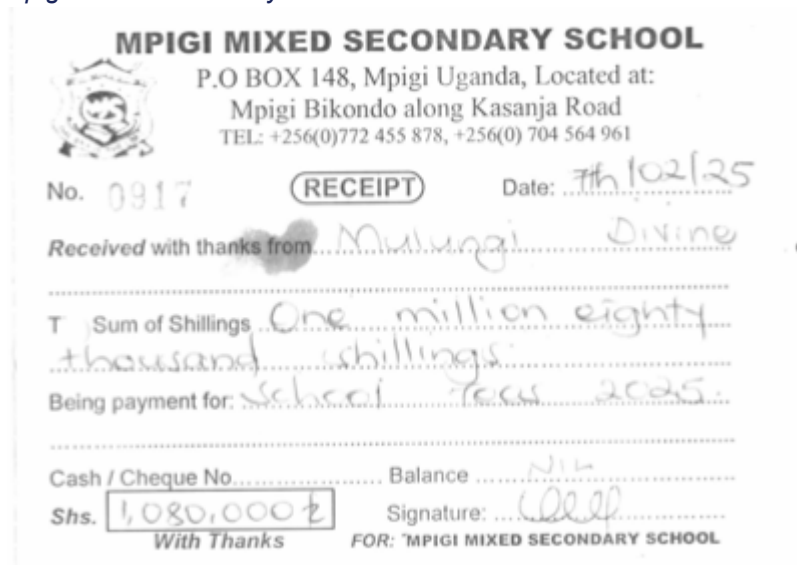 MPIGI MIXED SECONDARY SCHOOL
P.O BOX 148, Mpigi Uganda, Located at:
Mpigi Bikondo along Kasanja Road
TEL: +256(0)772 455 878, +256(0) 704 564 961
No. 0917 RECEIPT Date: 7th/02/25
Received with thanks from Mulungi Divine
T Sum of Shillings One million eighty
thousand shillings
Being payment for: School fees 2025.
Cash / Cheque No. Balance NIL
Shs. 1,080,000 Signature:
With Thanks FOR: MPIGI MIXED SECONDARY SCHOOL